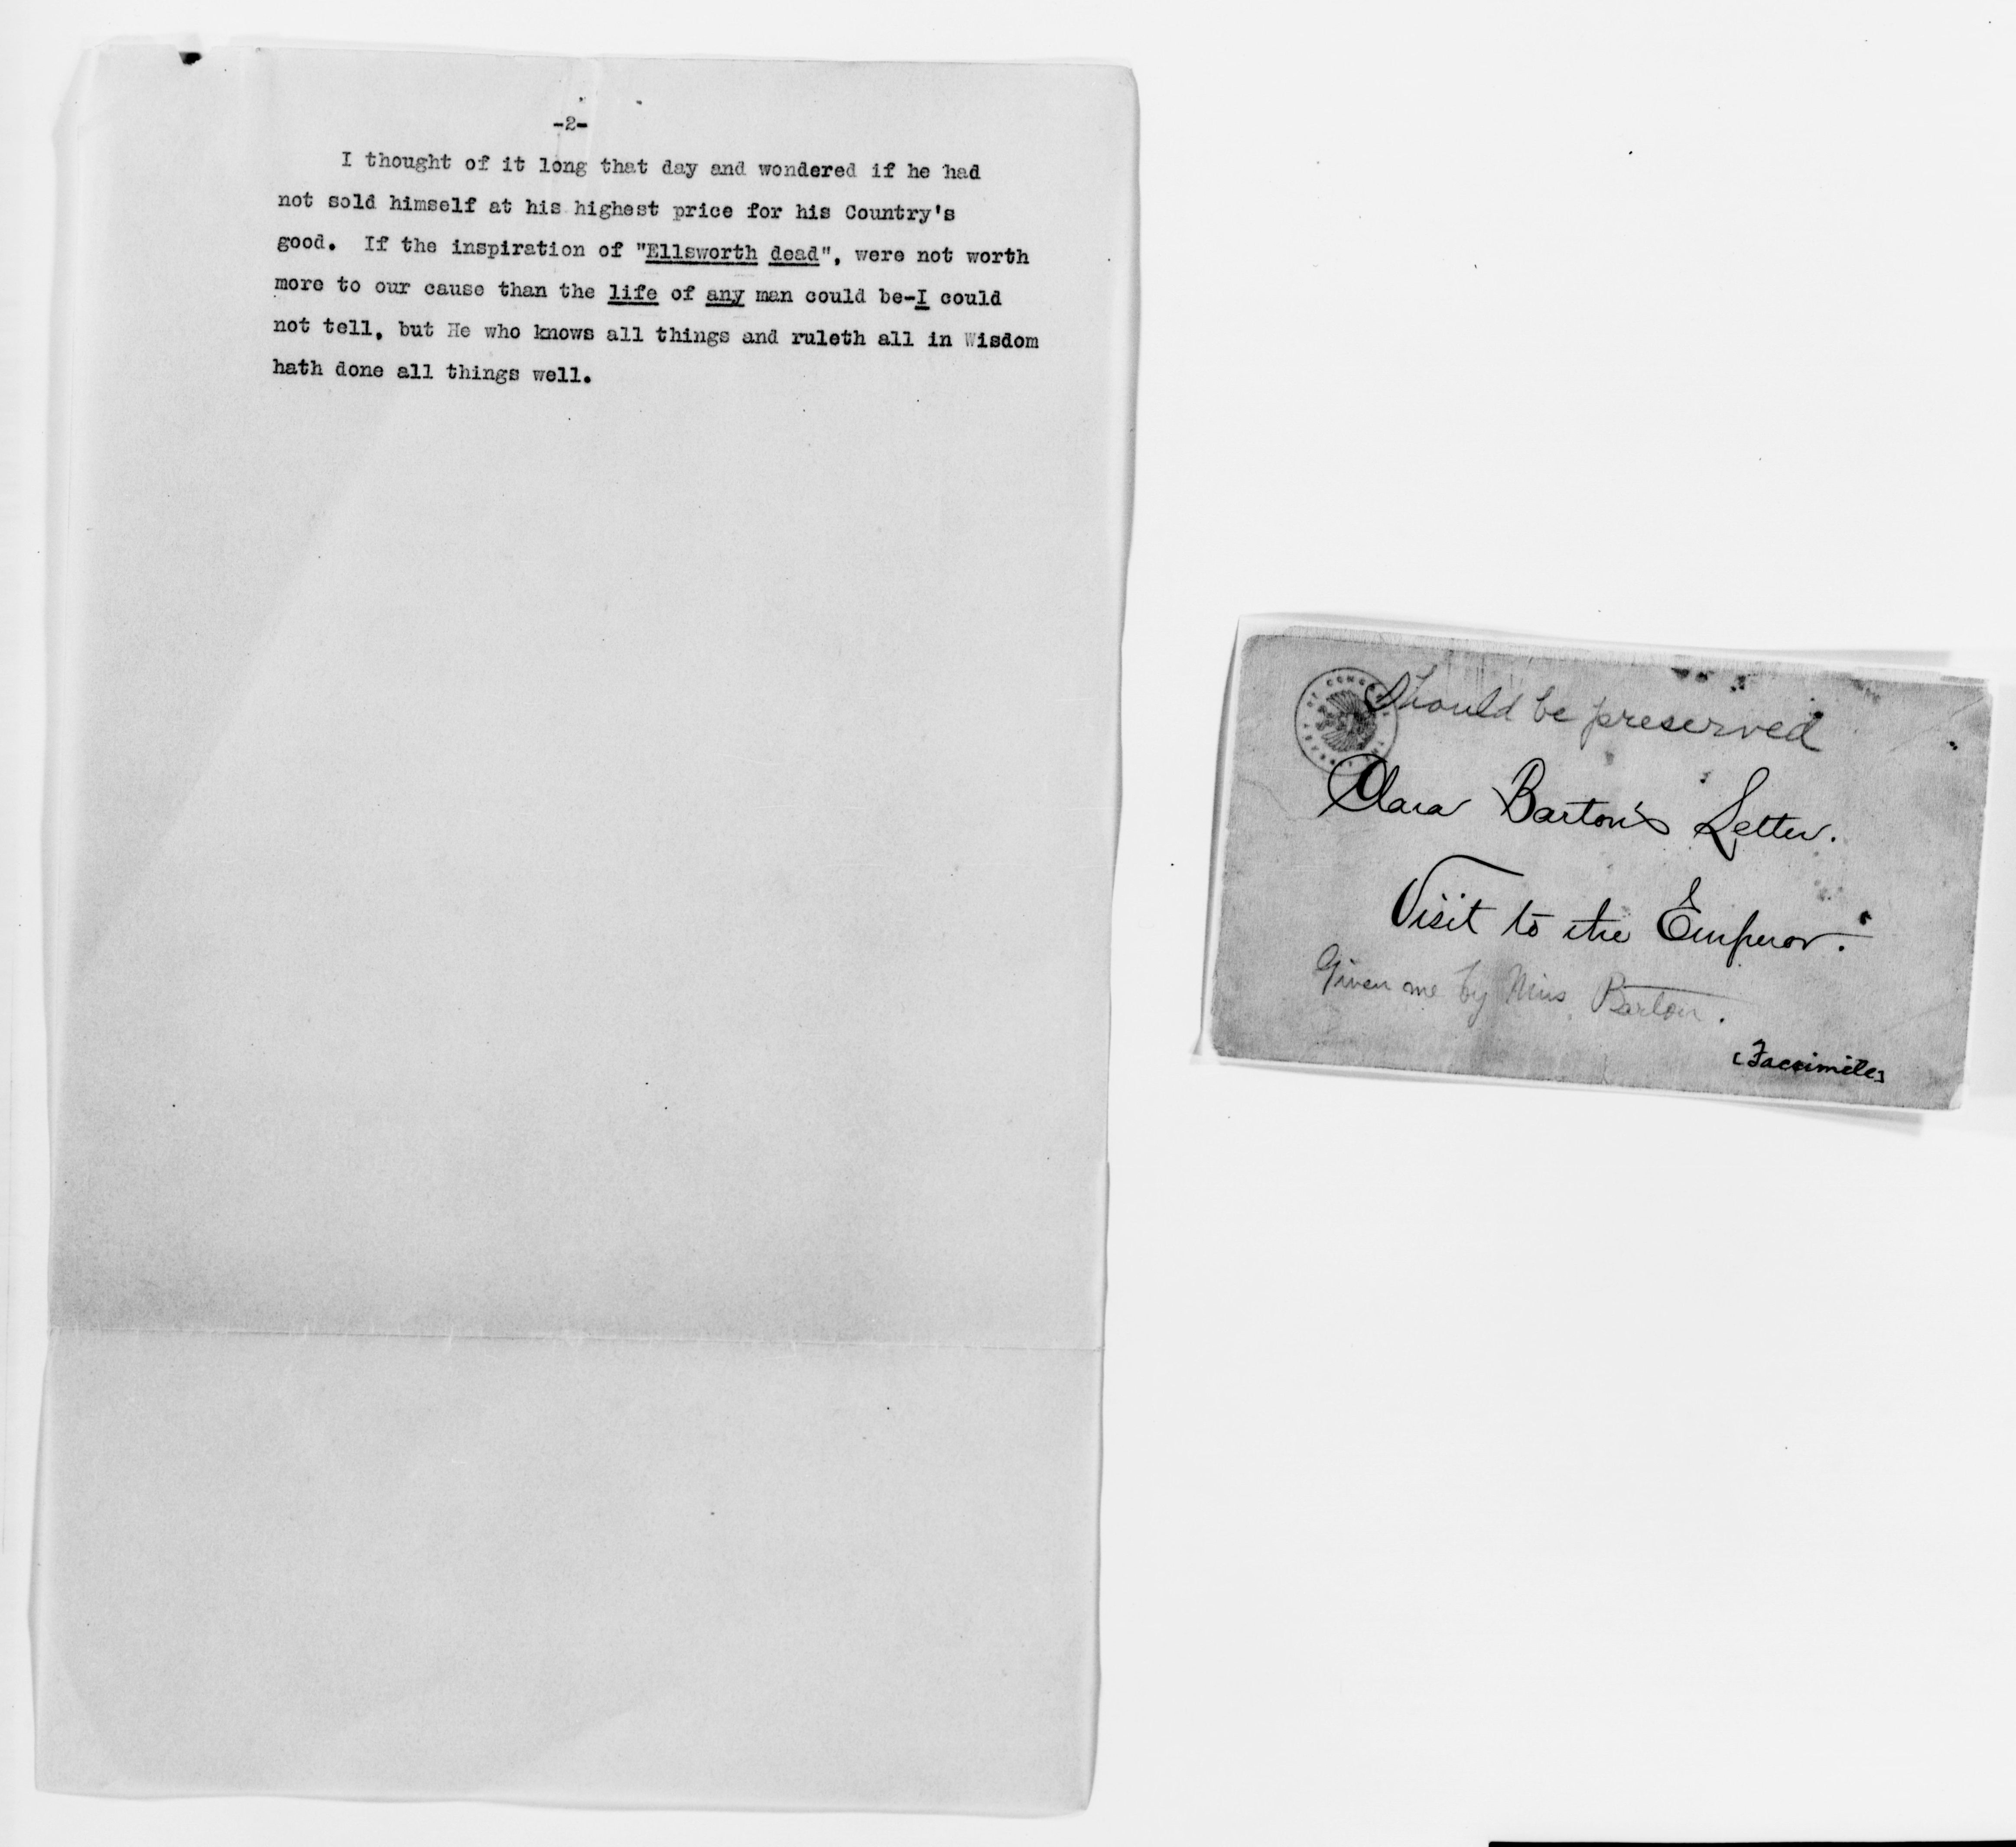 -2-
I thought of it long that day and wondered if he had
not sold himself at his highest price for his Country's
good. If the inspiration of "Ellsworth dead", were not worth
more to our cause than the life of any man could be-I could
not tell, but He who knows all things and ruleth all in Wisdom
hath done all things well.
Should be preserved
Clara Barton's Letter.
Visit to the Emperor.
Given me by Miss Barton.
[Facsimile]